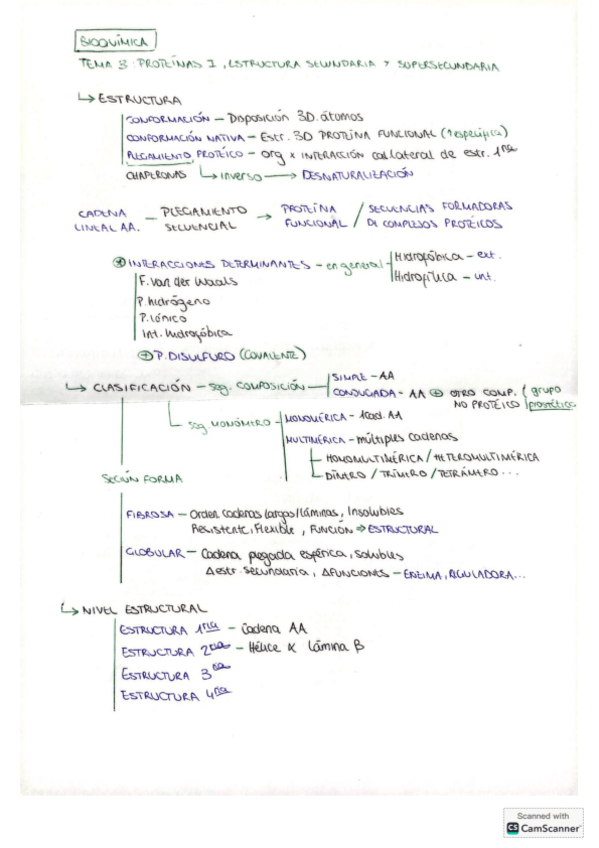 BIOQUÍMICA
TEMA 3: PROTEÍNAS I, ESTRUCTURA SECUNDARIA Y SUPERSECUNDARIA
↳ ESTRUCTURA
CONFORMACIÓN – Disposición 3D. átomos
CONFORMACIÓN NATIVA – Estr. 3D PROTEÍNA FUNCIONAL (1 específica)
PLEGAMIENTO PROTÉICO – org x INTERACCIÓN cat.lateral de estr. 1ria
CHAPERONAS ↳ inverso → DESNATURALIZACIÓN
CADENA LINEAL AA. – PLEGAMIENTO SECUENCIAL → PROTEÍNA FUNCIONAL / SECUENCIAS FORMADORAS DE COMPLEJOS PROTÉICOS
* INTERACCIONES DETERMINANTES – en general – Hidrofóbica – ext.
Hidrofílica – int.
F. van der Waals
P. hidrógeno
P. iónico
Int. hidrofóbica
⊕ P. DISULFURO (COVALENTE)
↳ CLASIFICACIÓN – seg. COMPOSICIÓN – SIMPLE – AA
CONJUGADA – AA ⊕ OTRO COMP. NO PROTÉICO (grupo prostético
seg MONÓMERO – MONOMÉRICA – 1cad. AA
MULTIMÉRICA – múltiples cadenas
HOMOMULTIMÉRICA / HETEROMULTIMÉRICA
DÍMERO / TRÍMERO / TETRÁMERO...
SEGÚN FORMA
FIBROSA – Orden cadenas largas/láminas, Insolubles
Resistente, Flexible, FUNCIÓN ⇒ ESTRUCTURAL
GLOBULAR – Cadena plegada esférica, solubles
Δestr. secundaria, ΔFUNCIONES – ENZIMA, REGULADORA...
↳ NIVEL ESTRUCTURAL
ESTRUCTURA 1ria – Cadena AA
ESTRUCTURA 2ria – Hélice α Lámina B
ESTRUCTURA 3ria
ESTRUCTURA 4ria
Scanned with
CS CamScanner